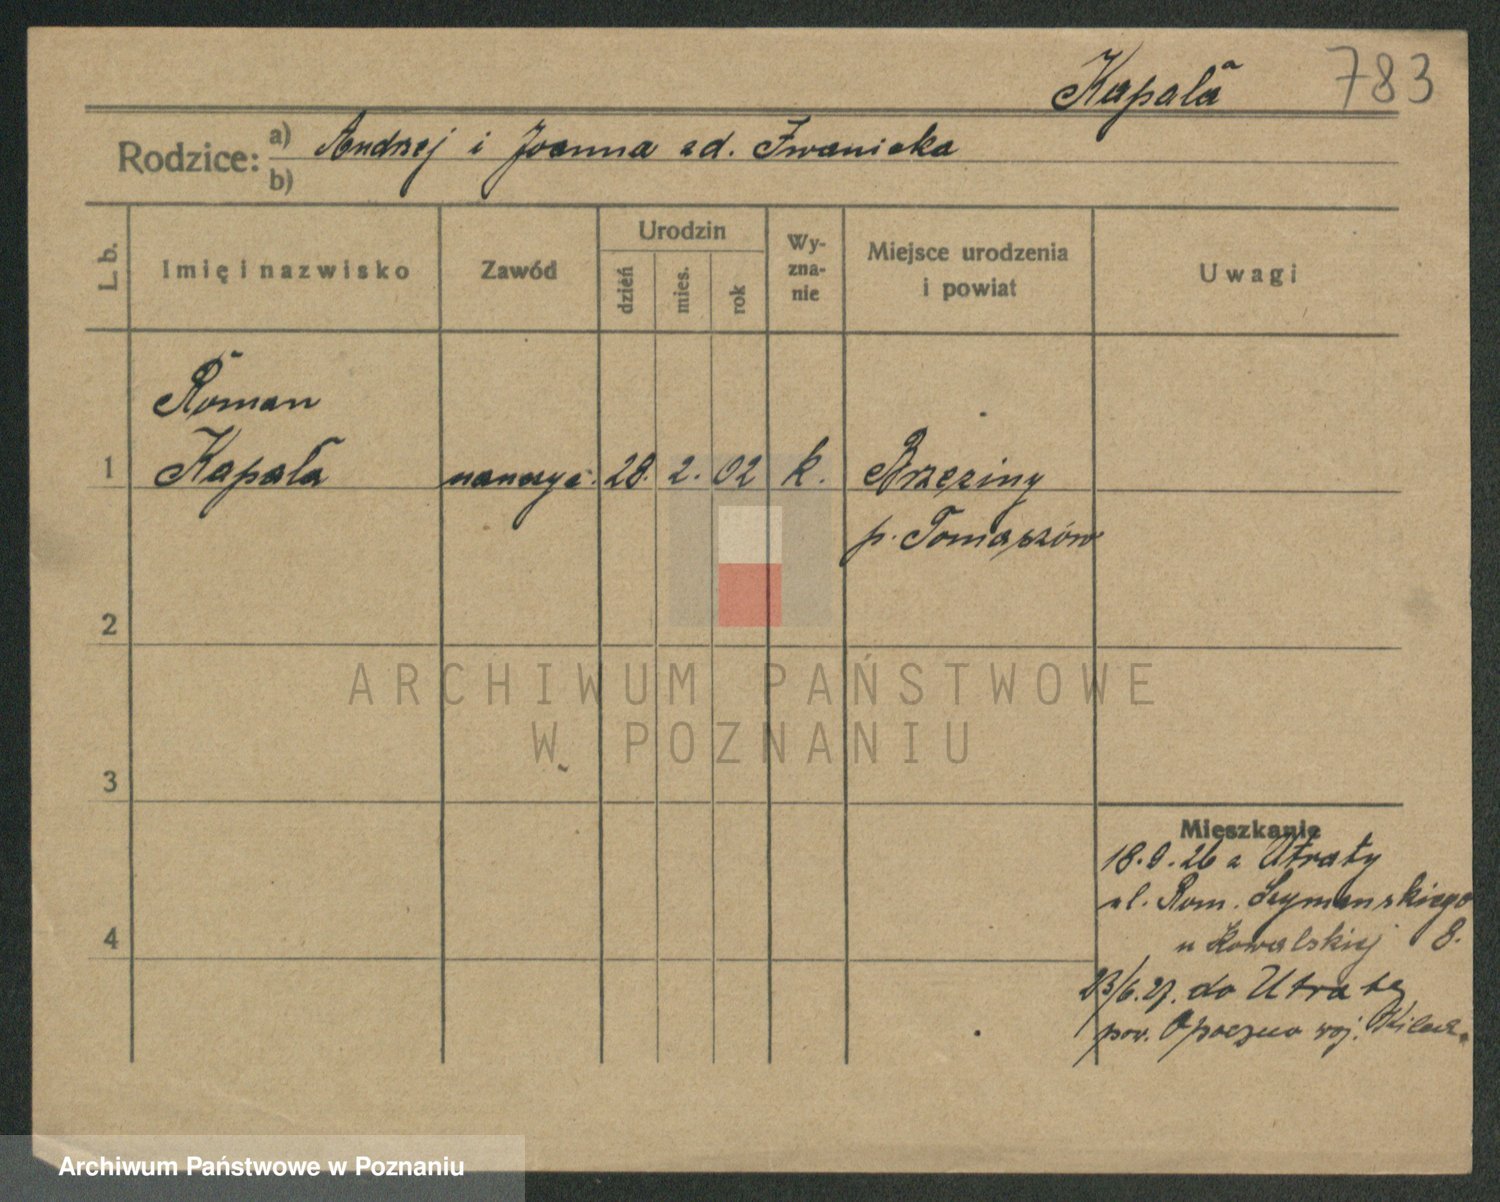 Kapała 783
Rodzice: a) Andrzej i Joanna zd. Iwanicka
b)
L. b. Imię i nazwisko Zawód Urodzin dzień mies. rok Wy-zna-nie Miejsce urodzenia i powiat Uwagi
Roman
1 Kapała nauczyc. 28. 2. 02 k. Brzeziny
p. Tomaszów
2
3
4
Mieszkanie
18.9.26 z Utraty
ul. Rom. Szymańskiego
u Kowalskiej 8.
23/6.27. do Utraty
pow. Opoczno woj.
ARCHIWUM PAŃSTWOWE
W POZNANIU
Archiwum Państwowe w Poznaniu